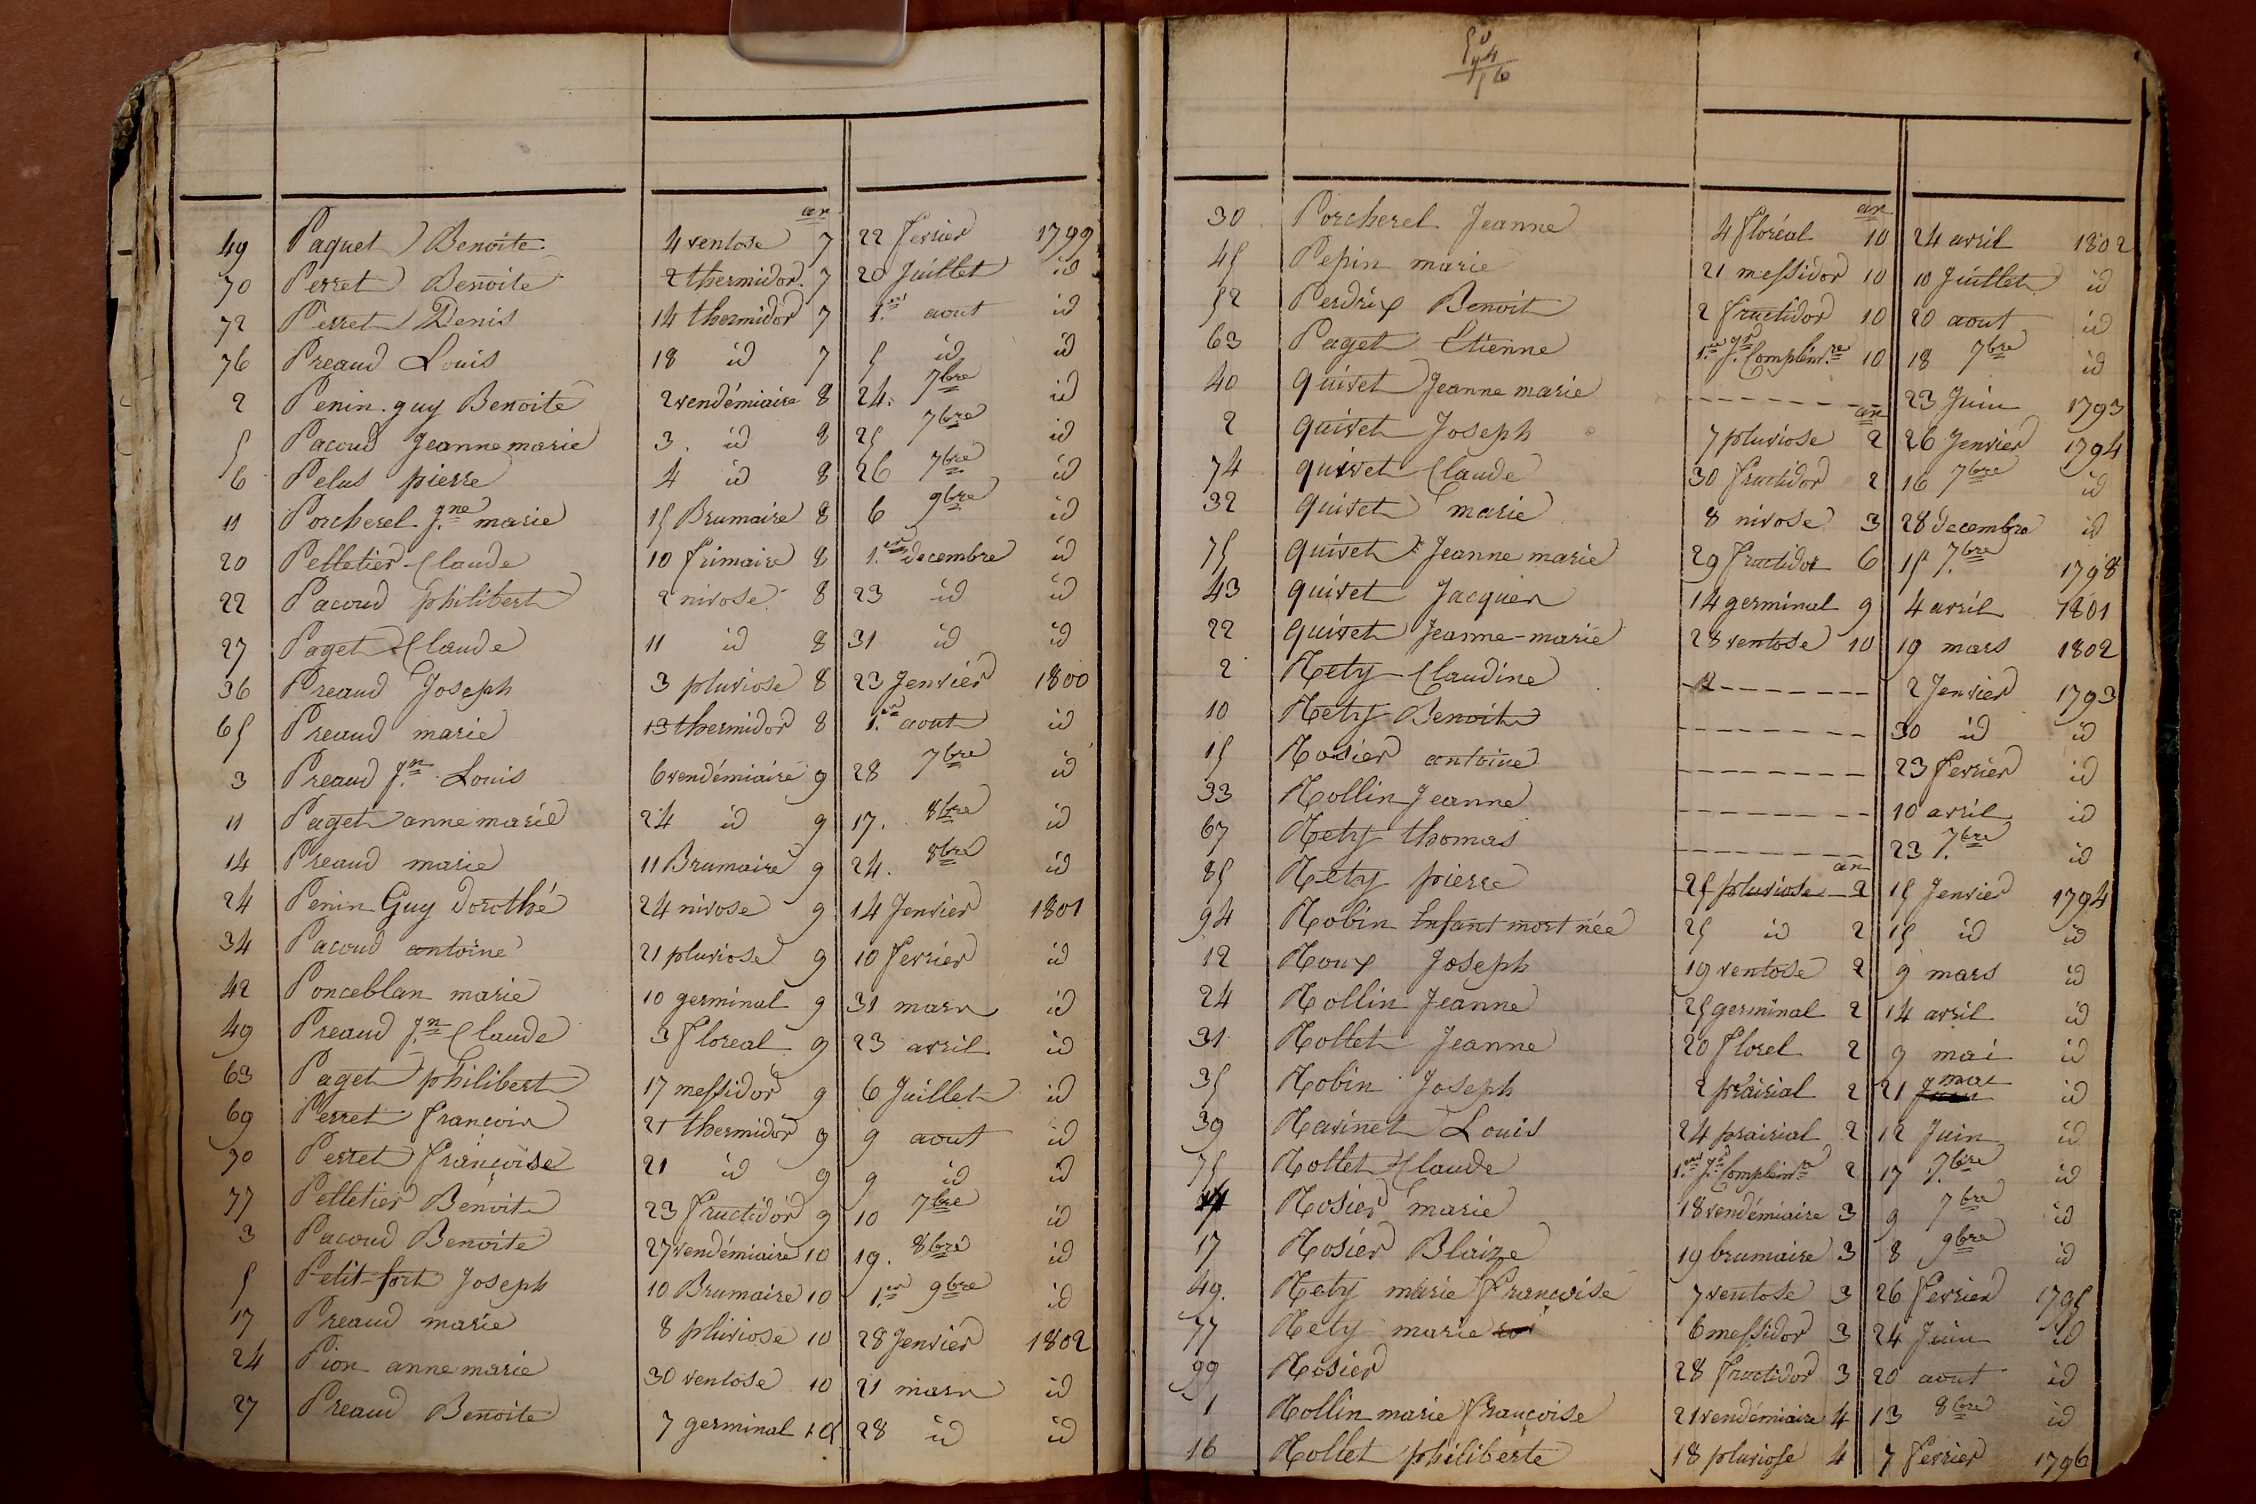 an
49 Paquet Benoite 4 ventose 7 22 fevrier 1799
70 Perret Benoite 2 thermidor 7 20 Juillet id
72 Perret Denis 14 thermidor 7 1.er aout id
76 Preaud Louis 18 id 7 5 id id
2 Penin-guy Benoite 2 vendémiaire 8 24. 7bre id
5 Pacoud Jeanne marie 3. id 8 25 7bre id
6 Pelus pierre 4 id 8 26 7bre id
11 Porcherel J.ne marie 15 Brumaire 8 6 9bre id
20 Pelletier Claude 10 frimaire 8 1.er decembre id
22 Pacoud philibert 2 nivose 8 23 id id
27 Paget Claude 11 id 8 31 id id
36 Preaud Joseph 3 pluviose 8 23 Jenvier 1800
65 Preaud marie 13 thermidor 8 1.er aout id
3 Preaud J.n Louis 6 vendémiaire 9 28 7bre id
11 Paget anne marie 24 id 9 17. 8bre id
14 Preaud marie 11 Brumaire 9 24. 8bre id
24 Penin Guy dorothé 24 nivose 9 14 Jenvier 1801
34 Pacoud antoine 21 pluviose 9 10 fevrier id
42 Ponceblan marie 10 germinal 9 31 mars id
49 Preaud J.n Claude 3 floreal 9 23 avril id
63 Paget philibert 17 messidor 9 6 Juillet id
69 Perret francois 21 thermidor 9 9 aout id
70 Perret françoise 21 id 9 9 id id
77 Pelletier Benoit 23 fructidor 9 10 7bre id
3 Pacoud Benoite 27 vendémiaire 10 19. 8bre id
5 Petit-fort Joseph 10 Brumaire 10 1.er 9bre id
17 Preaud marie 8 pluviose 10 28 Jenvier 1802
24 Pion anne marie 30 ventose 10 21 mars id
27 Preaud Benoite 7 germinal 10 28 id id
an
30 Porcherel Jeanne 4 floréal 10 24 avril 1802
45 Pepin marie 21 messidor 10 10 Juillet id
52 Perdrix Benoit 2 fructidor 10 20 aout id
63 Paget Etienne 1.er J.r Complém.re 10 18 7bre id
40 quivet Jeanne marie 23 Juin 1793
an
2 quivet Joseph 7 pluviose 2 26 Jenvier 1794
74 quivet Claude 30 fructidor 2 16 7bre id
32 quivet marie 8 nivose 3 28 decembre id
75 quivet Jeanne marie 29 fructidor 6 15 7.bre 1798
43 quivet Jacques 14 germinal 9 4 avril 1801
22 quivet Jeanne-marie 28 ventose 10 19 mars 1802
2 Rety Claudine 2 Jenvier 1793
10 Rety Benoit 30 id id
15 Rosier antoine 23 fevrier id
33 Rollin Jeanne 10 avril id
67 Rety thomas 23 7.bre id
an
85 Rety pierre 25 pluviose 2 15 Jenvier 1794
94 Robin Enfant mort née 25 id 2 15 id id
12 Roux Joseph 19 ventose 2 9 mars id
24 Rollin Jeanne 25 germinal 2 14 avril id
31 Rollet Jeanne 20 florel 2 9 mai id
35 Robin Joseph 2 prairial 2 21 mai id
39 Ravinet Louis 24 prairial 2 12 Juin id
75 Rollet Claude 1.er J.r Complém.re 2 17 7.bre id
Rosier marie 18 vendémiaire 3 9 7bre id
17 Rosier Blaize 19 brumaire 3 8 9bre id
49. Rety marie françoise 7 ventose 3 26 fevrier 1795
77 Rety marie 6 messidor 3 24 Juin id
99 Rosier 28 fructidor 3 20 aout id
1 Rollin marie françoise 21 vendémiaire 4 13 8bre id
16 Rollet philiberte 18 pluviose 4 7 fevrier 1796